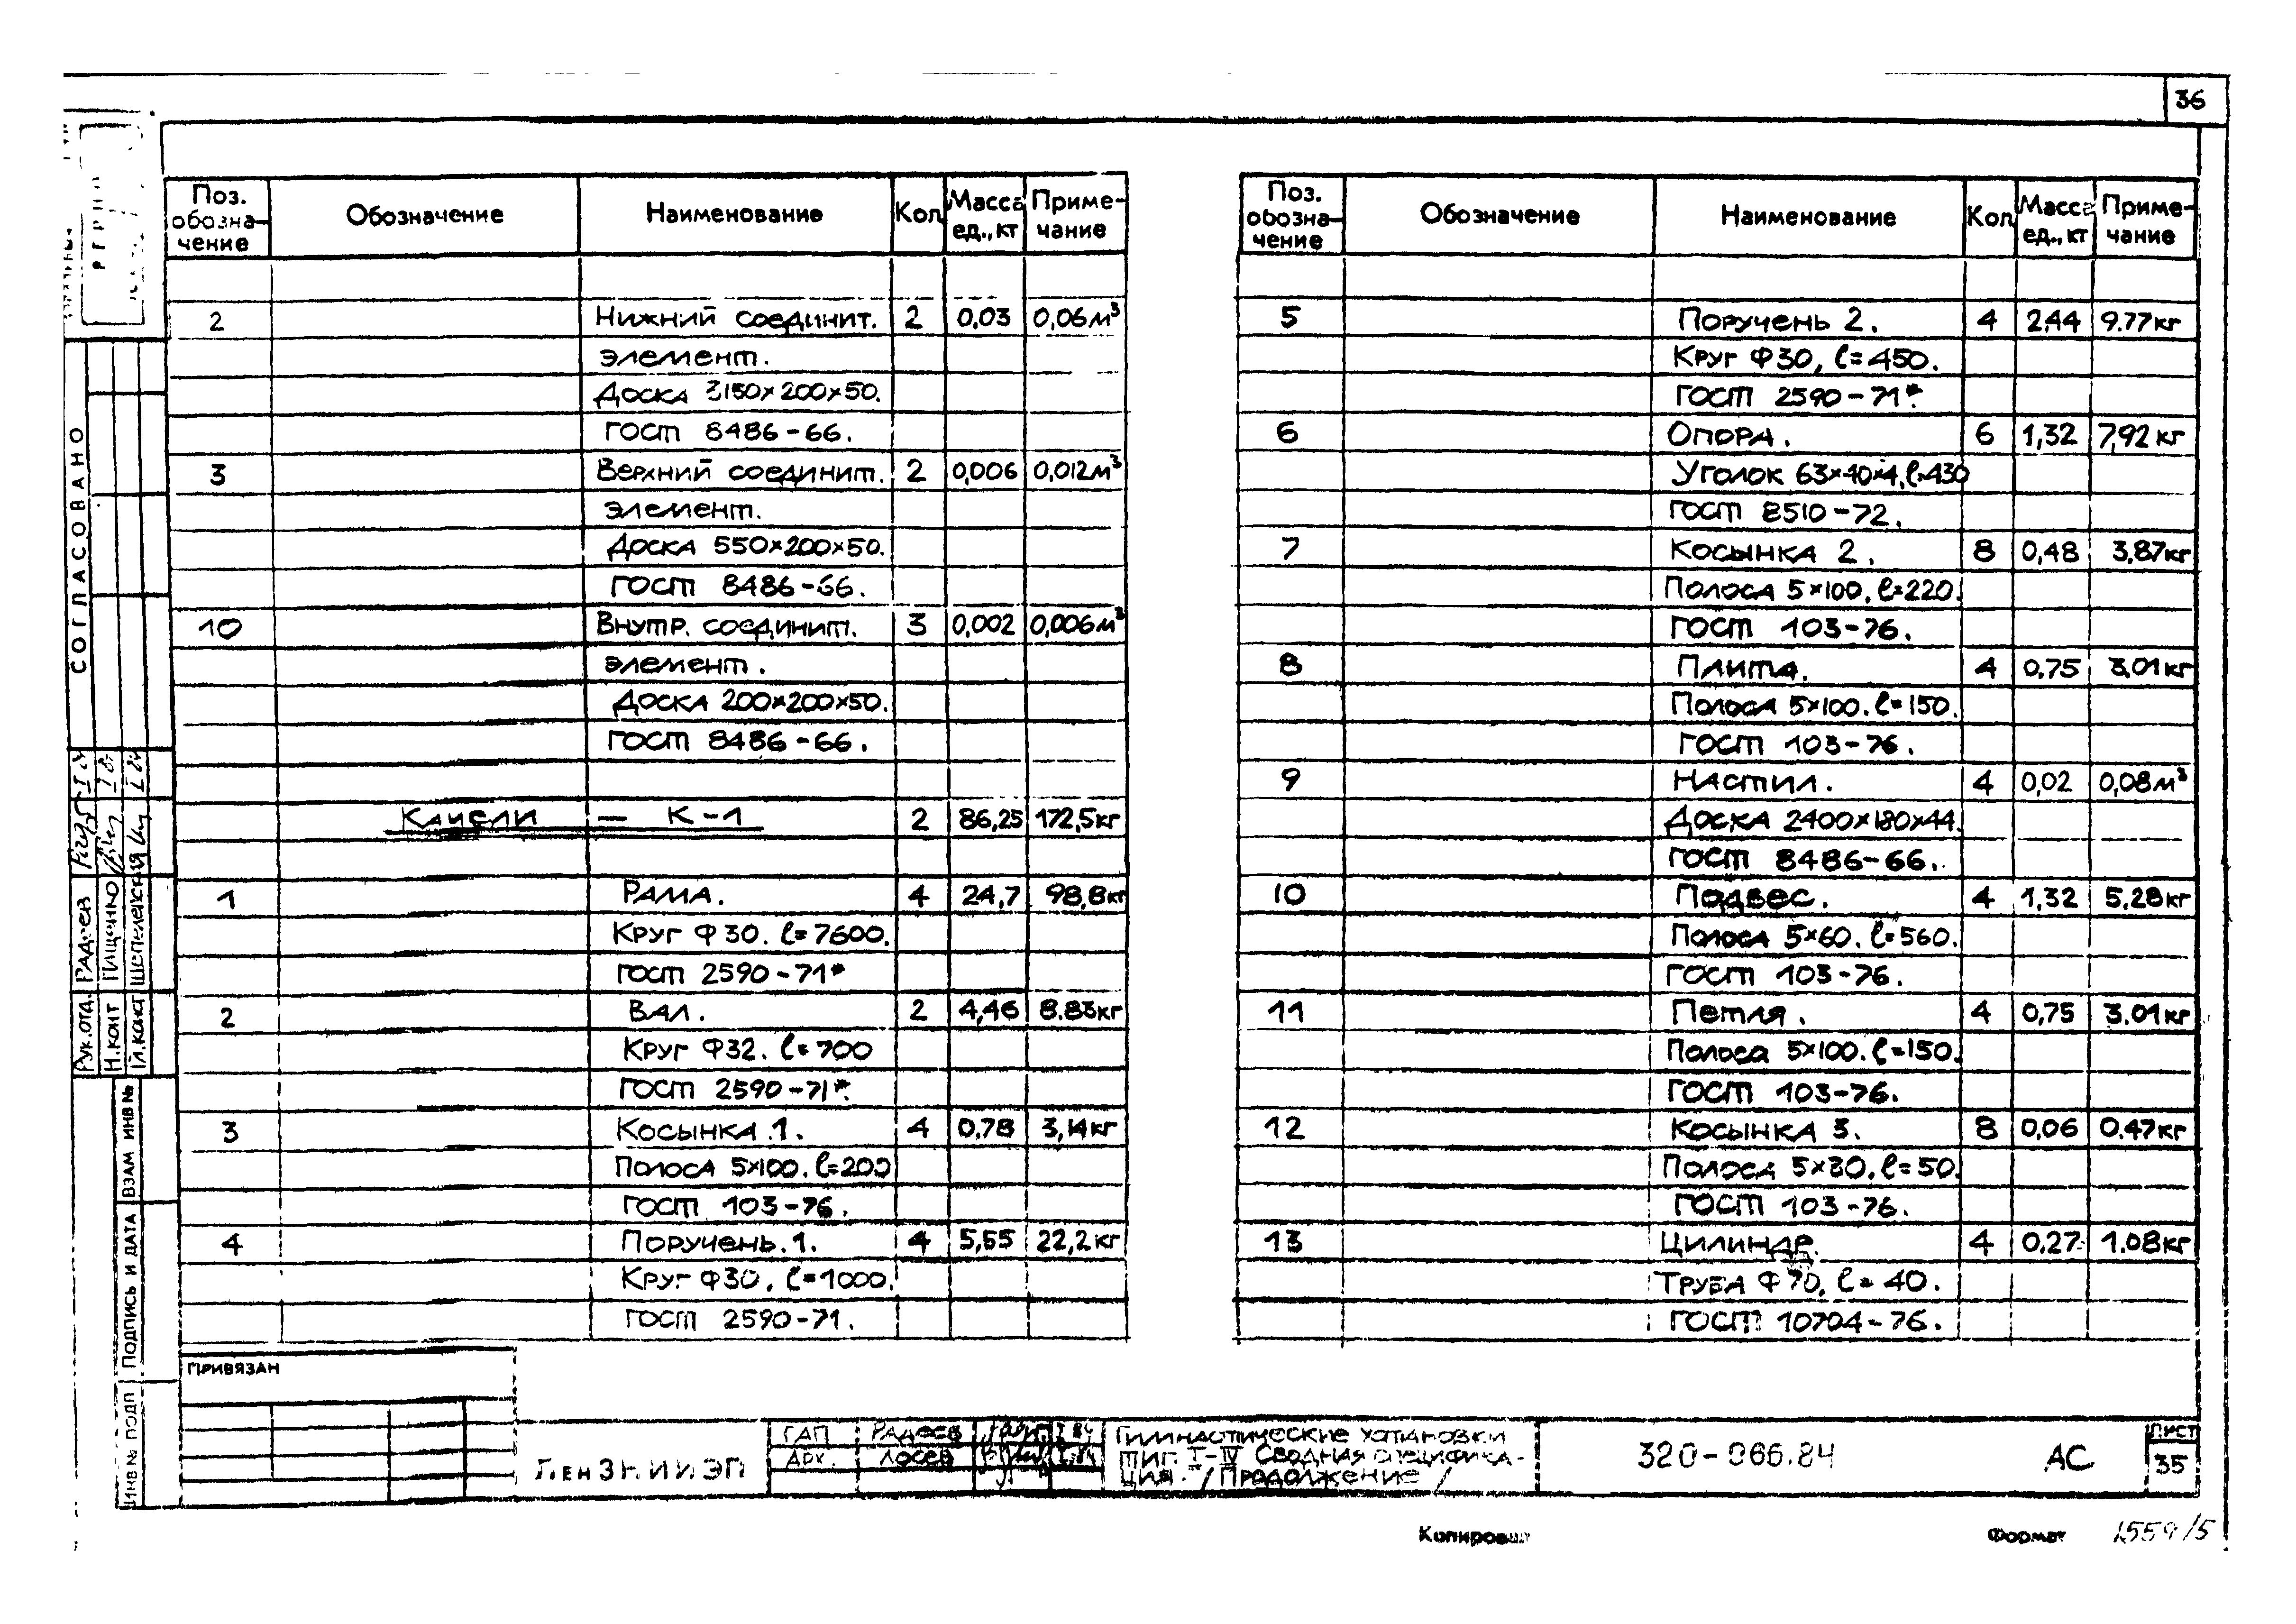 36
Поз. обозна-чение Обозначение Наименование Кол Масса ед., кг Приме-чание
2 Нижний соединит. 2 0,03 0,06м³
элемент.
Доска 3150×200×50.
ГОСТ 8486-66.
3 Верхний соединит. 2 0,006 0,012м³
элемент.
Доска 550×200×50.
ГОСТ 8486-66.
10 Внутр. соединит. 3 0,002 0,006м³
элемент.
Доска 200×200×50.
ГОСТ 8486-66.
Качели — К-1 2 86,25 172,5кг
1 Рама. 4 24,7 98,8кг
Круг Ф30. ℓ=7600.
ГОСТ 2590-71*
2 Вал. 2 4,46 8.83кг
Круг Ф32. ℓ=700
ГОСТ 2590-71*.
3 Косынка 1. 4 0,78 3,14кг
Полоса 5×100. ℓ=200
ГОСТ 103-76.
4 Поручень.1. 4 5,55 22,2кг
Круг Ф30, ℓ=1000.
ГОСТ 2590-71.
Поз. обозна-чение Обозначение Наименование Кол Масса ед., кг Приме-чание
5 Поручень 2. 4 2,44 9.77кг
Круг Ф30, ℓ=450.
ГОСТ 2590-71*.
6 Опора. 6 1,32 7,92кг
Уголок 63×40×4, ℓ=430
ГОСТ 8510-72.
7 Косынка 2. 8 0,48 3,87кг
Полоса 5×100, ℓ=220.
ГОСТ 103-76.
8 Плита. 4 0,75 3,01кг
Полоса 5×100. ℓ=150.
ГОСТ 103-76.
9 Настил. 4 0,02 0,08м³
Доска 2400×180×44.
ГОСТ 8486-66.
10 Подвес. 4 1,32 5,28кг
Полоса 5×60. ℓ=560.
ГОСТ 103-76.
11 Петля. 4 0,75 3.01кг
Полоса 5×100. ℓ=150.
ГОСТ 103-76.
12 Косынка 3. 8 0,06 0.47кг
Полоса 5×30. ℓ=50.
ГОСТ 103-76.
13 Цилиндр. 4 0,27 1.08кг
Труба Ф70, ℓ=40.
ГОСТ 10704-76.
СОГЛАСОВАНО
Рук.отд. Радеев
Н.конт Пищенко
Гл.конст Шепелевская
ВЗАМ ИНВ №
ПОДПИСЬ И ДАТА
ИНВ № ПОДП
ПРИВЯЗАН
ЛенЗНИИЭП
ГАП Радеев
Арх. Лосев
Гимнастические установки
тип I-IV Сводная специфика-
ция. /Продолжение/
320-066.84
АС
Лист
35
Копировал
Формат
1559/5